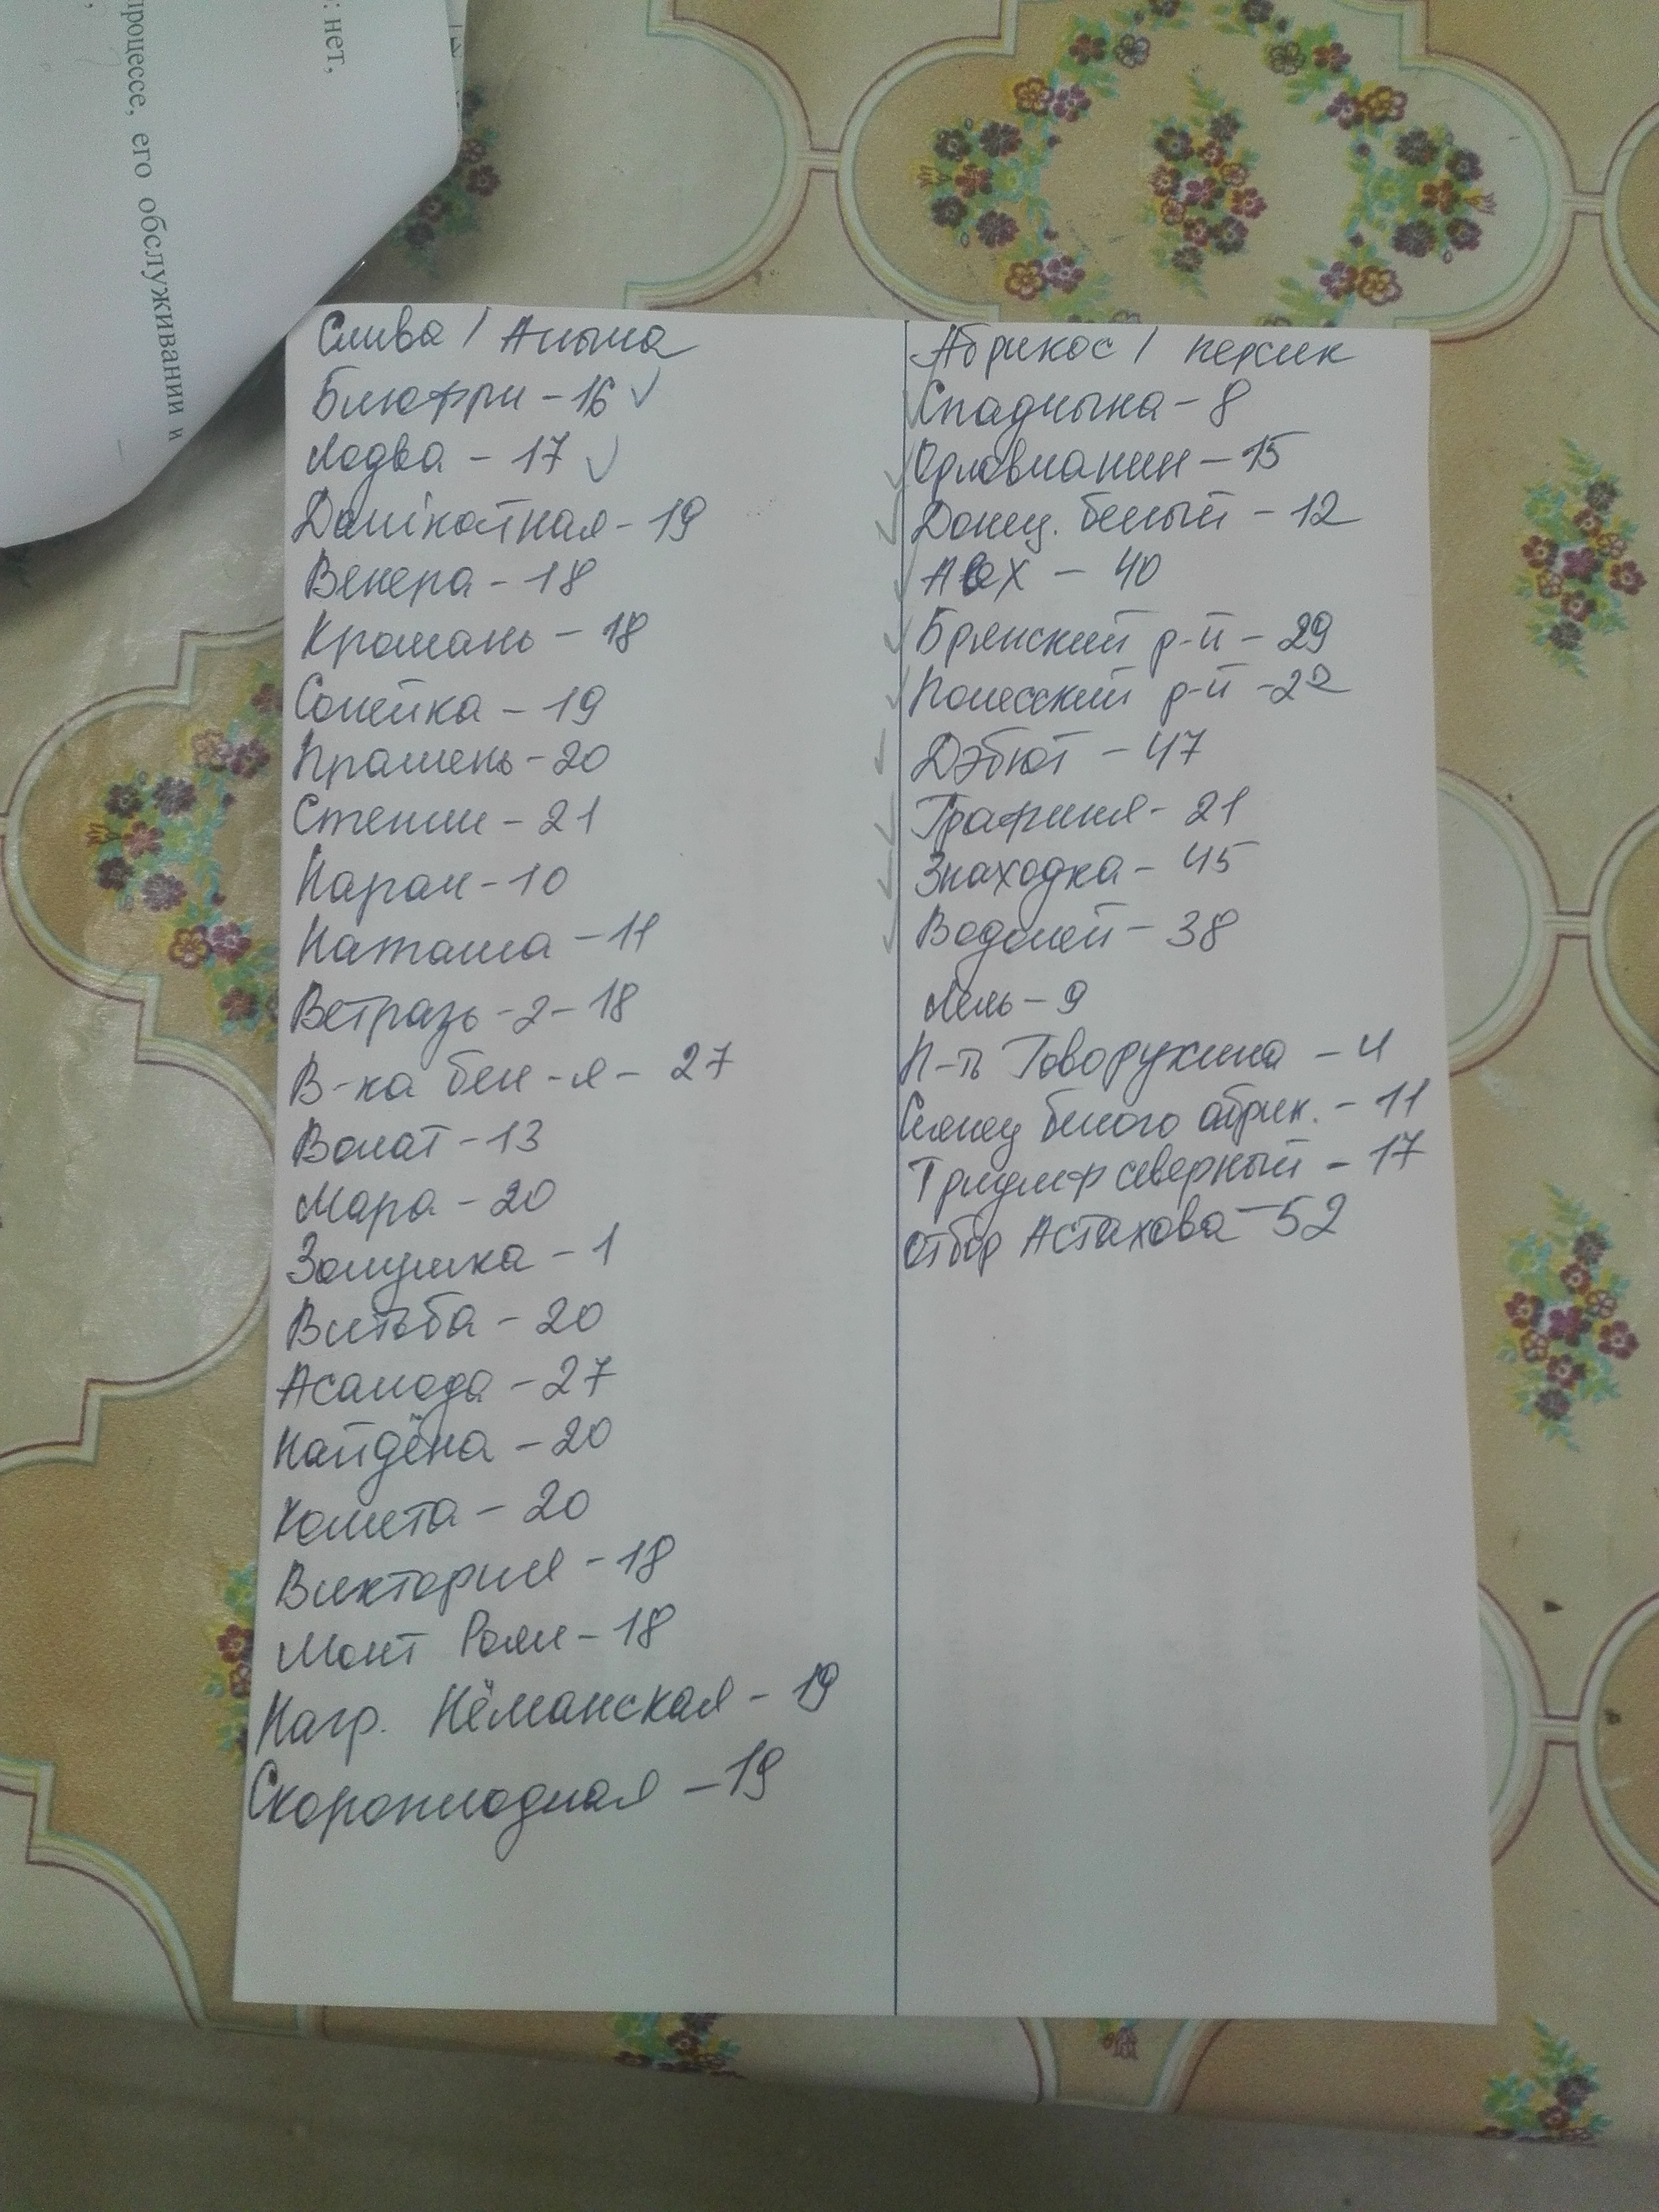 : нет,
процессе, его обслуживании и
Слива / Алыча
Блюфри - 16 ✓
Лодва - 17 ✓
Далікатная - 19
Венера - 18
Кромань - 18
Сонейка - 19
Прамень - 20
Стенли - 21
Нарач - 10
Наташа - 11
Ветразь - 2 - 18
В-ка бел-я - 27
Волат - 13
Мара - 20
Золушка - 1
Витьба - 20
Асалода - 27
Найдёна - 20
Комета - 20
Виктория - 18
Монт Роял - 18
Нагр. Нёманская - 19
Скороплодная - 19
Абрикос / персик
✓ Спадчына - 8
✓ Орловчанин - 15
✓ Донец. белый - 12
✓ - 40
✓ Брянский р-й - 29
✓ Полесский р-й - 22
✓ Дэбют - 47
✓ Графиня - 21
✓ Знаходка - 45
✓ Водолей - 38
Лель - 9
П-ть Говорухина - 4
Сеянец белого абрик. - 11
Триумф северный - 17
Отбор Астахова - 52